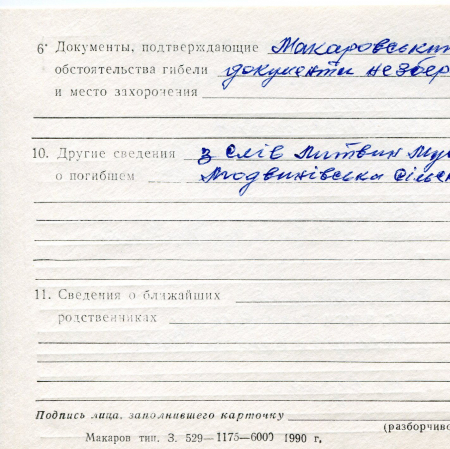 6· Документы, подтверждающие Макаровськи
обстоятельства гибели документи не збер
и место захоронения
10. Другие сведения з слів Литвин
о погибшем Людвинівська сільс
11. Сведения о ближайших
родственниках
Подпись лица, заполнившего карточку
(разборчиво
Макаров тип. З. 529—1175—6000 1990 г.